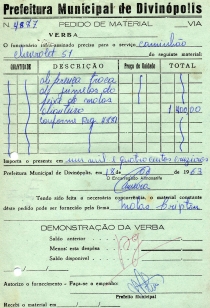 Prefeitura Municipal de Divinópolis
Nº 4877 PEDIDO DE MATERIAL VIA
VERBA
O funcionário infra-assinado precisa para o serviço caminhão
chevrolet 51 do seguinte material:
QUANTIDADE DESCRIÇÃO Preço da Unidade TOTAL
de troca
de
de molas
dianteiro 1.400,00
conforme
Importa o presente em um mil e quatrocentos cruzeiros
Prefeitura Municipal de Divinópolis, em 18 de de 1963
O Encarregado Almoxarife
Tendo sido feita a necessária concorrência, o material constante
dêste pedido pode ser fornecido pela firma molas
DEMONSTRAÇÃO DA VERBA
Saldo anterior
Menos esta despesa
Saldo disponível
Autorizo o fornecimento - Faça-se o empenho:
Prefeito Municipal
Recebi o material em